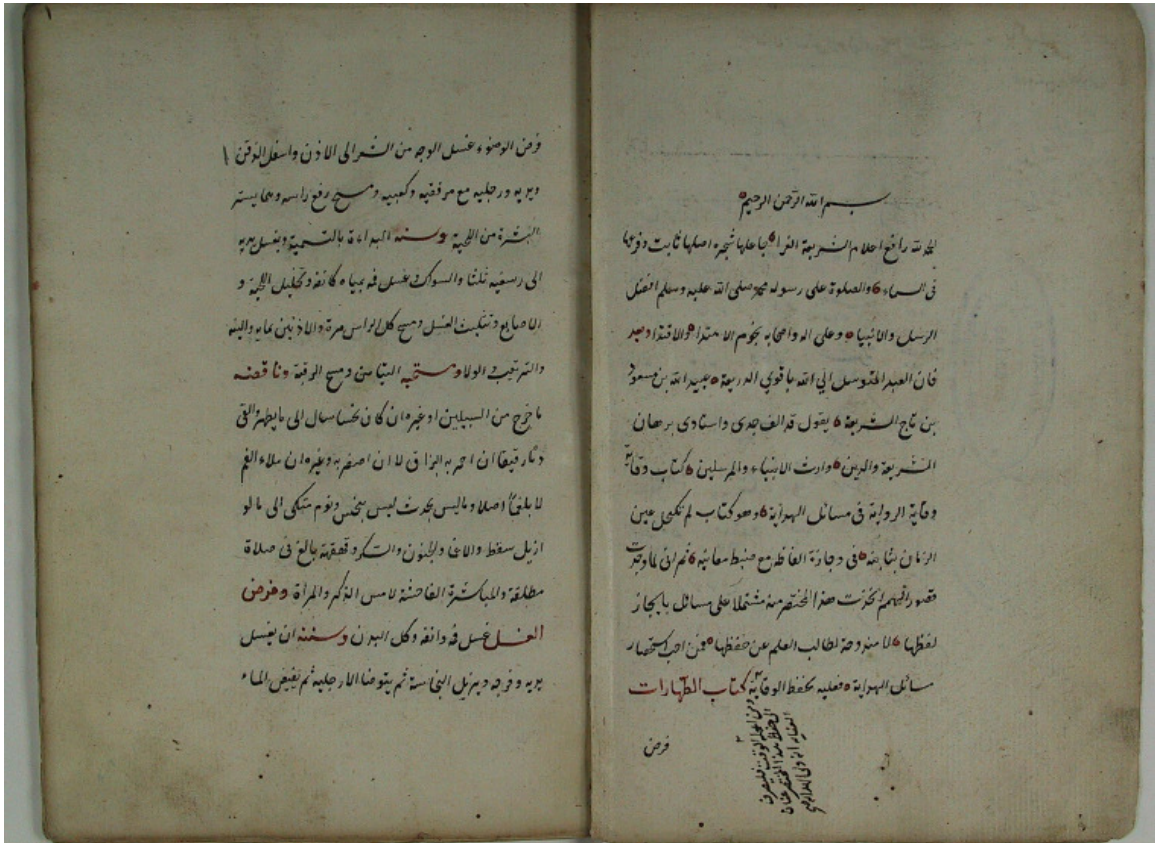 بسم الله الرحمن الرحيم
الحمد لله رافع اعلام الشريعة الغرا جاعلها شجرة اصلها ثابت وفرعها
فى السماء والصلوة على رسوله محمد صلى الله عليه وسلم افضل
الرسل والانبياء وعلى اله واصحابه نجوم الاهتداء والاقتداء وبعد
فان العبد المتوسل الي الله باقوي الذريعة عبيد الله بن مسعود
بن تاج الشريعة يقول قد الف جدى واستادى برهان
الشريعة والدين وارث الانبياء والمرسلين كتاب وقاية
وقاية الرواية فى مسائل الهداية وهو كتاب لم تكتحل عين
الزمان بثانيه فى وجازة الفاظه مع ضبط معانيه ثم انى لما وجدت
قصور الهمم اتخذت هذا المختصر منه مشتملا على مسائل بايجاز
لفظها لا مندوحة لطالب العلم عن حفظها فمن احب استحضار
مسائل الهداية فعليه بحفظ الوقاية كتاب الطهارات
ومن اعجله الوقت فليصرف
الى حفظ هذا المختصر عنان
العناية انه ولى الهداية
فرض
فرض الوضوء غسل الوجه من الشعر الى الاذن واسفل الذقن
ويديه ورجليه مع مرفقيه وكعبيه ومسح ربع راسه وما يستر
البشرة من اللحية وسنته البداءة بالتسمية وبغسل يديه
الى رسغيه ثلثا والسواك وغسل فمه بمياه كانفه وتخليل اللحية و
الاصابع وتثليث الغسل ومسح كل الراس مرة والاذنين بمايه والنية
والترتيب والولا ومستحبه التيامن ومسح الرقبة وناقضه
ما خرج من السبيلين او غيره ان كان نجسا سال الى ما يطهر والقئ
دما رقيقا ان احمر به البزاق لا ان اصفر به وغيره ان ملاء الفم
لا بلغما اصلا وما ليس بحدث ليس بنجس ونوم متكئ الى ما لو
ازيل سقط والاغما والجنون والسكر وقهقهة بالغ فى صلاة
مطلقة والمباشرة الفاحشة لا مس الذكر والمرأة وفرض
الغسل غسل فمه وانفه وكل البدن وسنته ان يغسل
يديه وفرجه ويزيل النجاسة ثم يتوضا الا رجليه ثم يفيض الماء